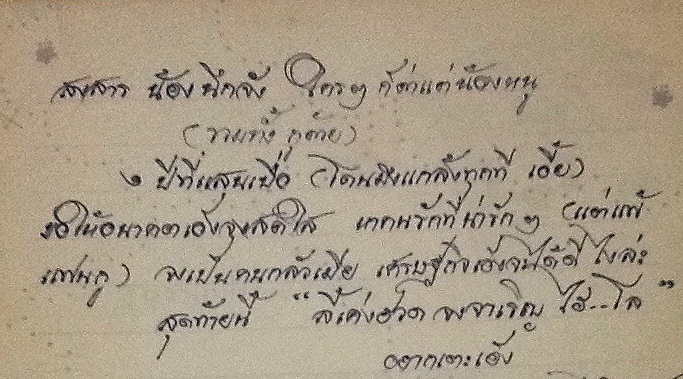 สงสาร น้องนึกจัง ใครๆ ก็ด่าแต่น้องหนู
(รวมทั้ง กูด้วย)
๖ ปีที่แสนเบื่อ (โดนมึงแกล้งทุกที เอี้ย)
ขอให้อนาคตเอ็งจงสดใส เทคนรักที่น่ารักๆ (แต่แพ้
แฟนกู) จงเป็นคนกลัวเมีย เศรษฐกิจเอ็งจนได้ดี ไงล่ะ
สุดท้ายนี้ "ลี้เค่งฮวด จงจำเริญ ไฮ้..โล"
อยากเตะเอ็ง